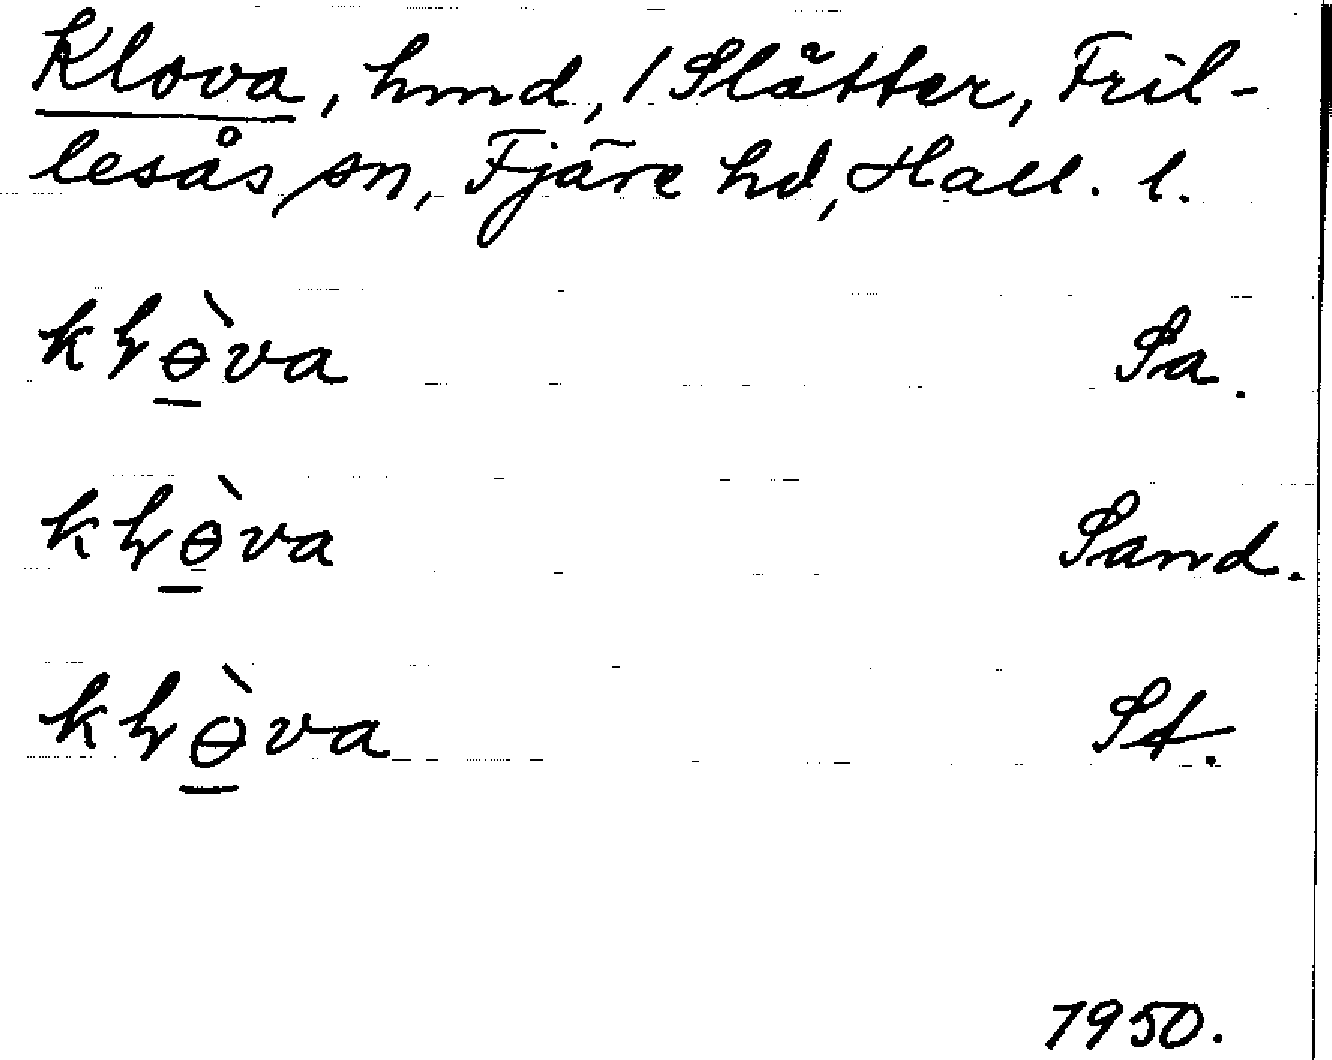 Klova, hmd, / Slåtter, Fril-
lesås sn, Fjäre hd, Hall. l.
kɬɵ̲̀va Sa.
kɬɵ̲̀va Sand.
kɬɵ̲̀va St.
1950.